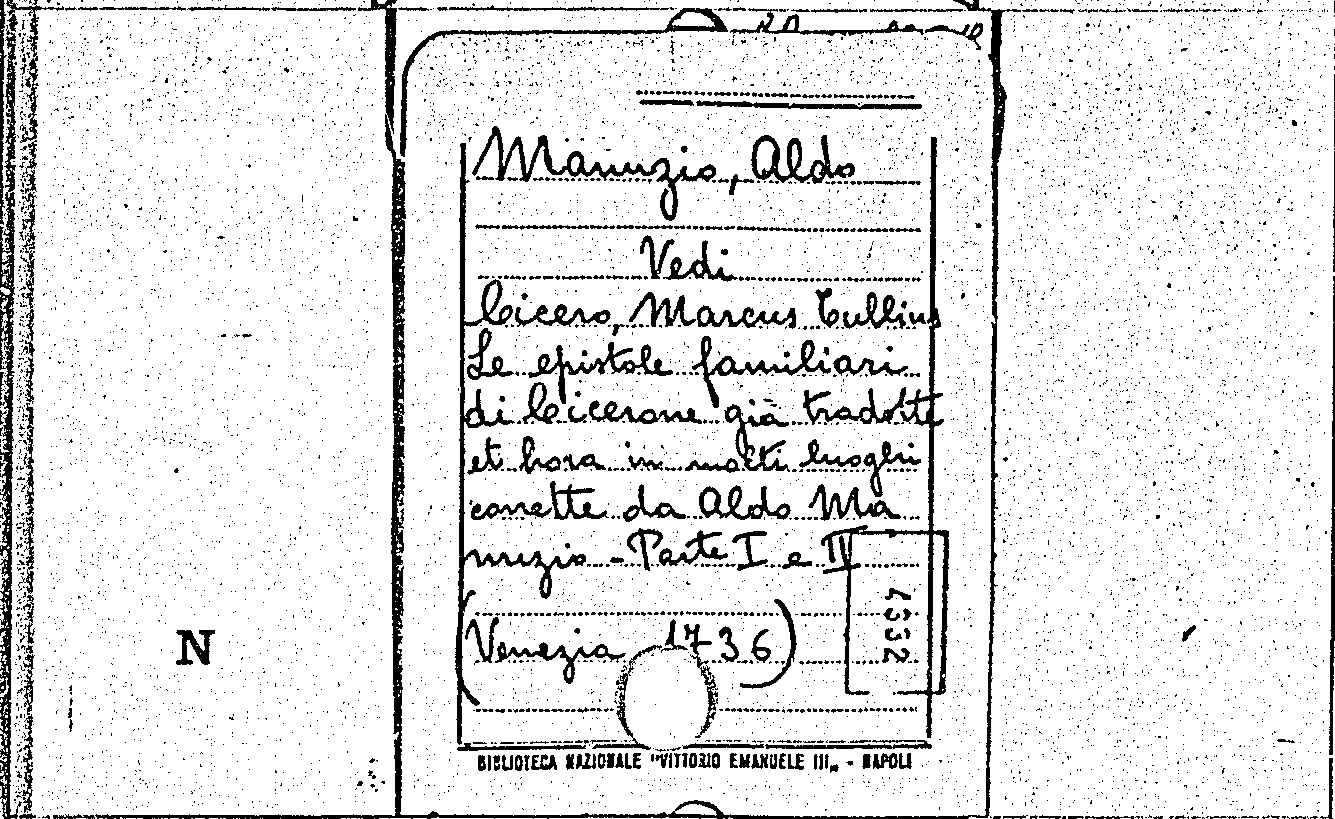 Manuzio, Aldo
Vedi
Cicero, Marcus Tullius
Le epistole familiari
di Cicerone già tradotte
et hora in molti luoghi
corrette da Aldo Ma
nuzio - Parte I e II
(Venezia 1736)
4332
N
BIBLIOTECA NAZIONALE "VITTORIO EMANUELE III„ - NAPOLI